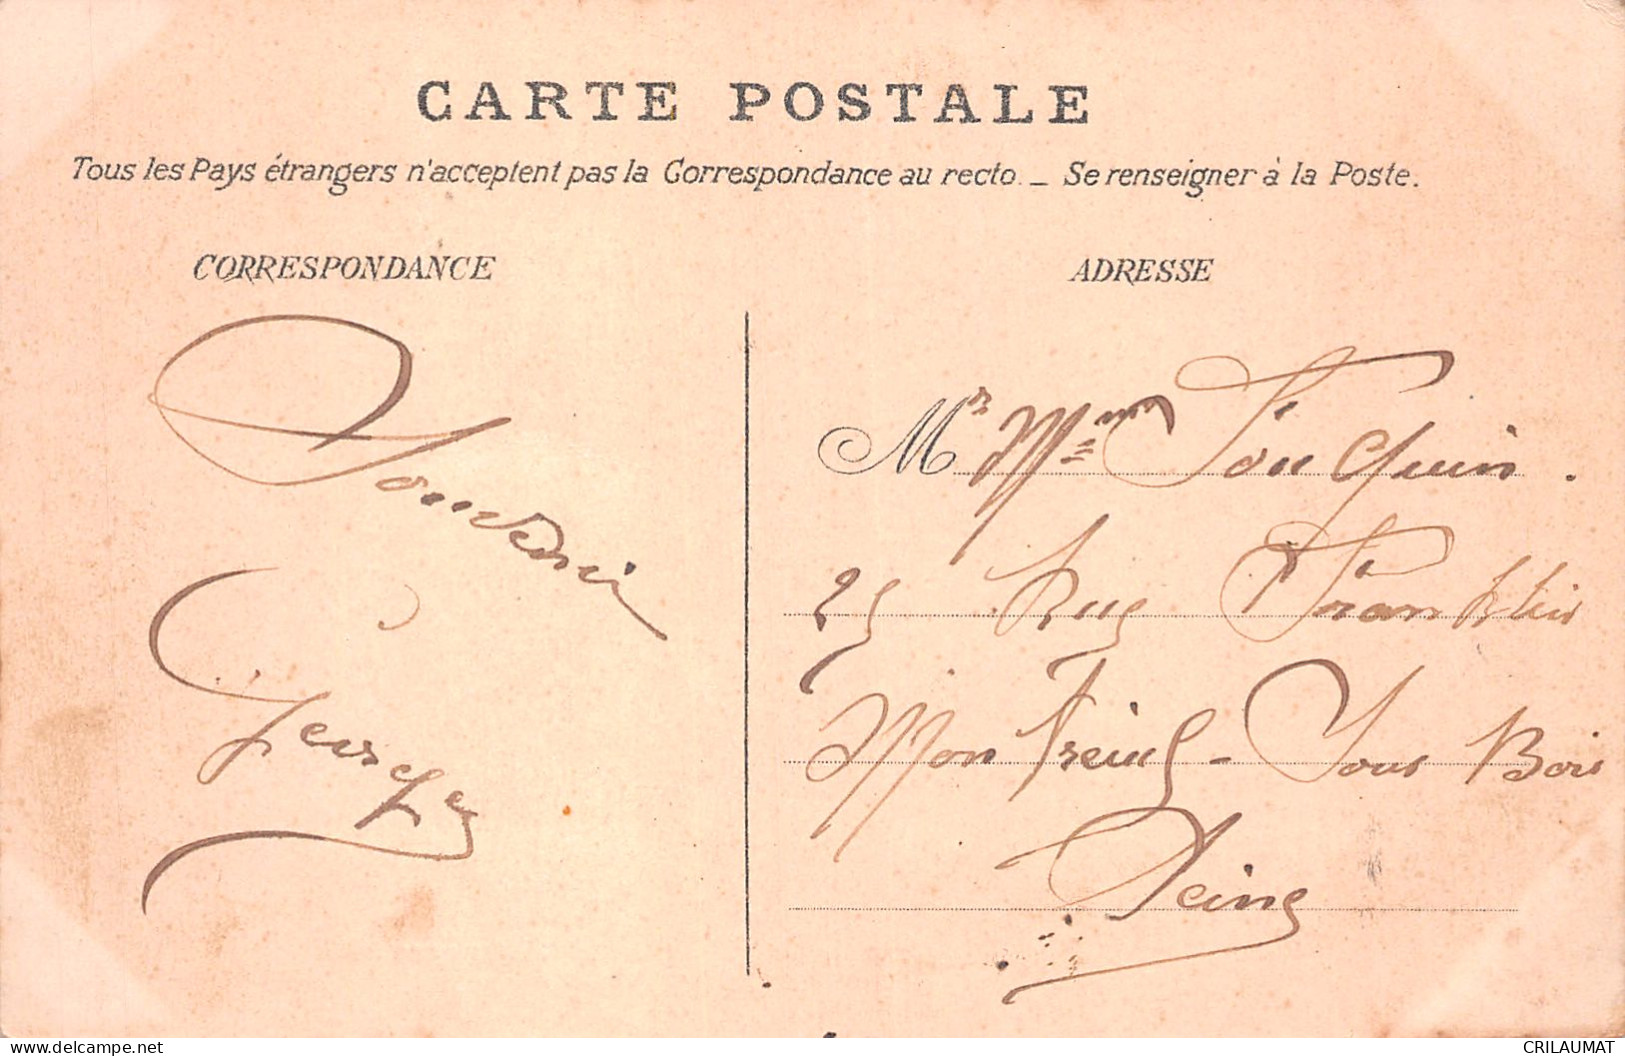 CARTE POSTALE
Tous les Pays étrangers n'acceptent pas la Correspondance au recto. _ Se renseigner à la Poste.
CORRESPONDANCE
Souvenir
George
ADRESSE
Mr Mme Fouquin.
25 Rue Franklin
Montreuil-Sous Bois
Seine
CRILAUMAT